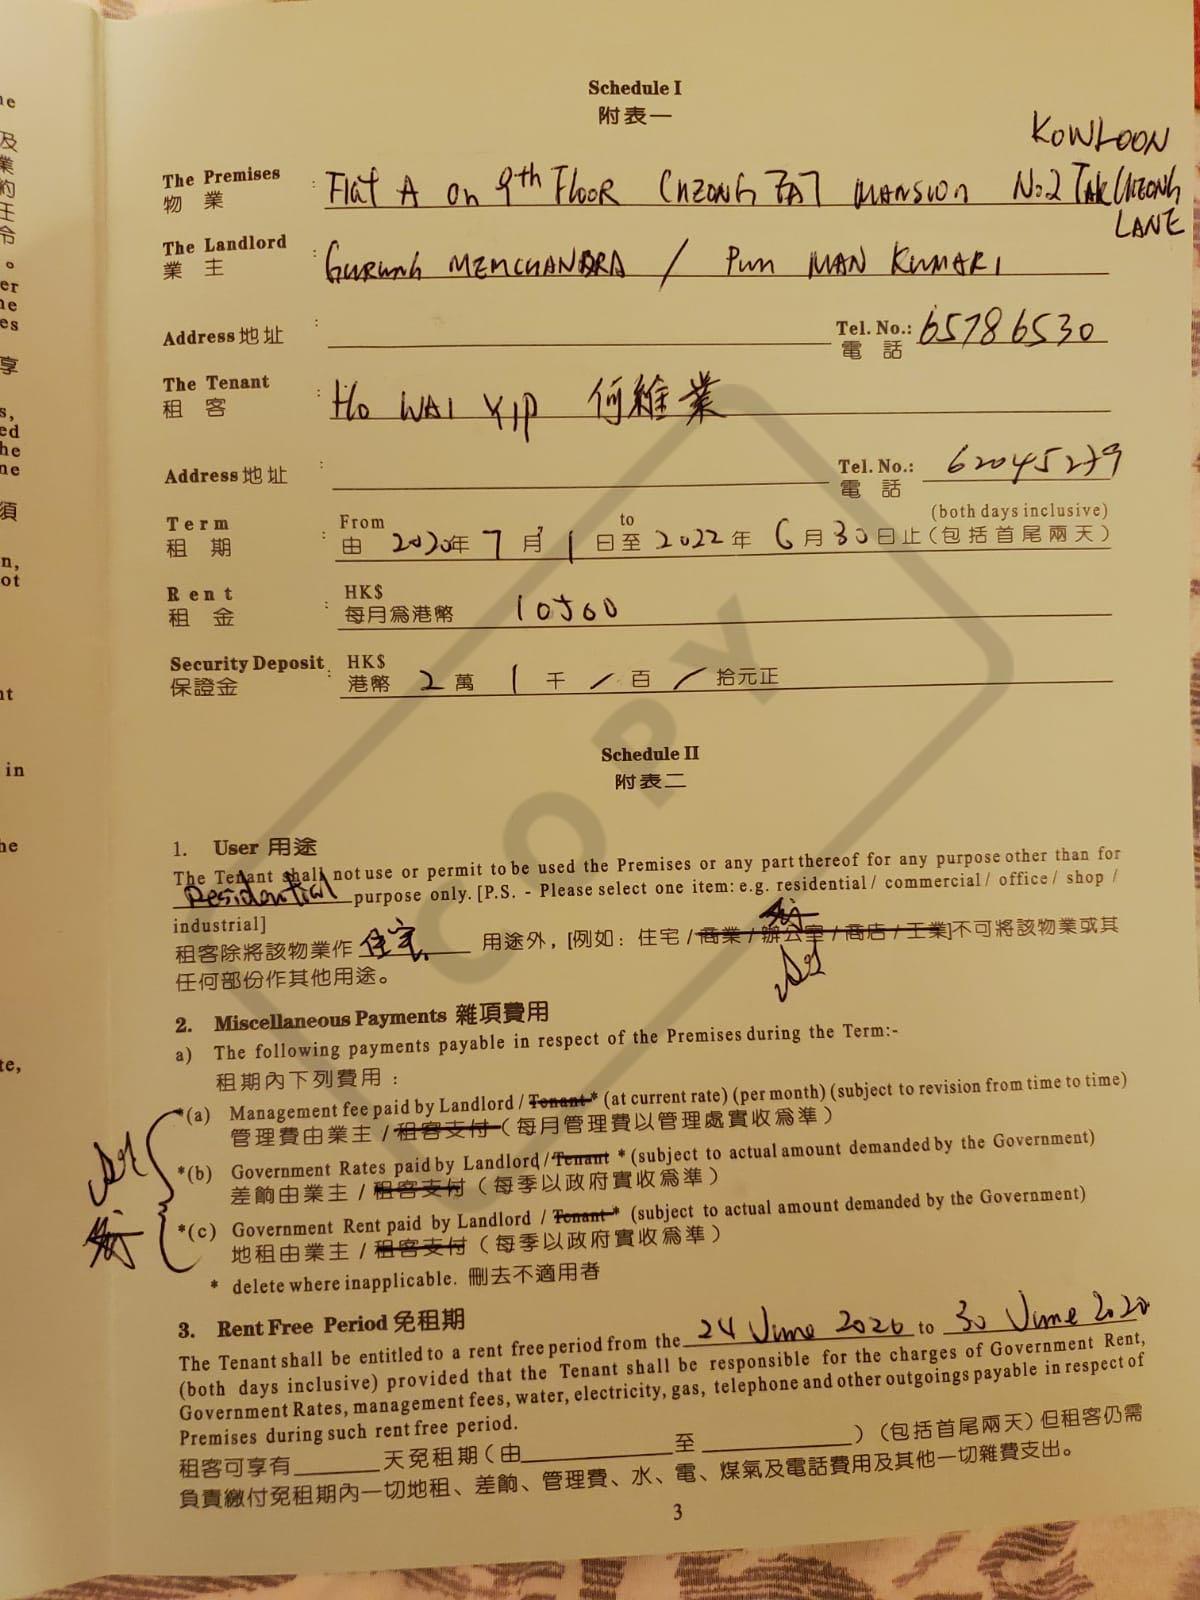 Schedule I
附表一
KOWLOON
The Premises : Flat A on 9th FLOOR CHEONG FAT MANSION No:2 TAK CHEONG
物 業
LANE
The Landlord : GURUNG MEMCHANDRA / PUN MAN KUMARI
業 主
Address 地址 : Tel. No.: 65786530
電 話
The Tenant : HO WAI YIP 何維業
租 客
Address 地址 : Tel. No.: 62045279
電 話
(both days inclusive)
Term From to
租 期 : 由 2020年 7 月 1 日至 2022 年 6 月 30 日止 (包括首尾兩天)
Rent HK$
租 金 : 每月為港幣 10500
Security Deposit : HK$
保證金 港幣 2 萬 1 千 / 百 / 拾元正
COPY
Schedule II
附表二
1. User 用途
The Tenant shall not use or permit to be used the Premises or any part thereof for any purpose other than for
Residential purpose only. [P.S. - Please select one item: e.g. residential / commercial / office / shop /
industrial]
租客除將該物業作 住宅 用途外，[例如：住宅 / 商業 / 辦公室 / 商店 / 工業]不可將該物業或其
任何部份作其他用途。
2. Miscellaneous Payments 雜項費用
a) The following payments payable in respect of the Premises during the Term:-
租期內下列費用：
*(a) Management fee paid by Landlord / Tenant * (at current rate) (per month) (subject to revision from time to time)
管理費由業主 / 租客支付 (每月管理費以管理處實收為準)
*(b) Government Rates paid by Landlord / Tenant * (subject to actual amount demanded by the Government)
差餉由業主 / 租客支付 (每季以政府實收為準)
*(c) Government Rent paid by Landlord / Tenant * (subject to actual amount demanded by the Government)
地租由業主 / 租客支付 (每季以政府實收為準)
* delete where inapplicable. 刪去不適用者
3. Rent Free Period 免租期
The Tenant shall be entitled to a rent free period from the 24 June 2020 to 30 June 2020
(both days inclusive) provided that the Tenant shall be responsible for the charges of Government Rent,
Government Rates, management fees, water, electricity, gas, telephone and other outgoings payable in respect of
Premises during such rent free period.
租客可享有 天免租期 (由 至 ) (包括首尾兩天) 但租客仍需
負責繳付免租期內一切地租、差餉、管理費、水、電、煤氣及電話費用及其他一切雜費支出。
3